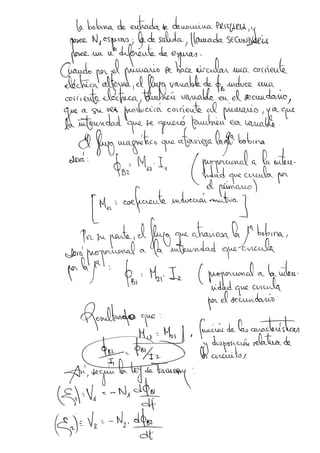 la bobina de entrada se denomina PRIMARIA, y
posee N, espiras; la de salida, llamada SECUNDARIA
posee un nº diferente de espiras.
Cuando por el primario se hace circular una corriente
eléctrica alterna, el flujo variable de ϕB induce una
corriente eléctrica, también variable en el secundario,
que a su vez producirá corriente al primario, ya que
la intensidad que se generó también era variable.
El flujo magnético que atraviesa la 2ª bobina
será: ϕB2 = M12 · I1 (proporcional a la inten-
sidad que circula por
el primario)
[M12 = coeficiente inducción mutua]
Por su parte, el flujo que atraviesa la 1ª bobina,
será proporcional a la intensidad que circula
por la 2ª: ϕB1 = M21 · I2 (proporcional a la inten-
sidad que circula
por el secundario
Resultando que:
M12 = M21, función de las características
ϕB2/I1 = ϕB1/I2 y disposición relativa de
circuito,
Así, según la ley de Faraday:
(ε1) = V1 = - N1 dϕB/dt
(ε2) = V2 = - N2 · dϕB2/dt